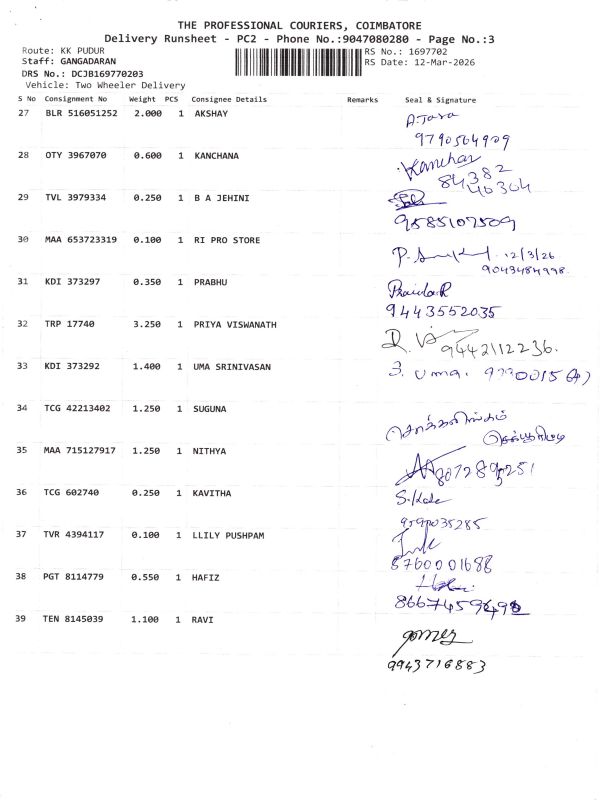 THE PROFESSIONAL COURIERS, COIMBATORE
Delivery Runsheet - PC2 - Phone No.:9047080280 - Page No.:3
Route: KK PUDUR RS No.: 1697702
Staff: GANGADARAN RS Date: 12-Mar-2026
DRS No.: DCJB169770203
Vehicle: Two Wheeler Delivery
S No Consignment No Weight PCS Consignee Details Remarks Seal & Signature
27 BLR 516051252 2.000 1 AKSHAY
9790564909
28 OTY 3967070 0.600 1 KANCHANA Kanchan
84382
46364
29 TVL 3979334 0.250 1 B A JEHINI
9585107509
30 MAA 653723319 0.100 1 RI PRO STORE
12/3/26
9043484998
31 KDI 373297 0.350 1 PRABHU
9443552035
32 TRP 17740 3.250 1 PRIYA VISWANATH
9442112236.
33 KDI 373292 1.400 1 UMA SRINIVASAN uma.
34 TCG 42213402 1.250 1 SUGUNA
சொக்கலிங்கம்
35 MAA 715127917 1.250 1 NITHYA
36 TCG 602740 0.250 1 KAVITHA
37 TVR 4394117 0.100 1 LLILY PUSHPAM
8760001688
38 PGT 8114779 0.550 1 HAFIZ
39 TEN 8145039 1.100 1 RAVI
gomez
9943716883